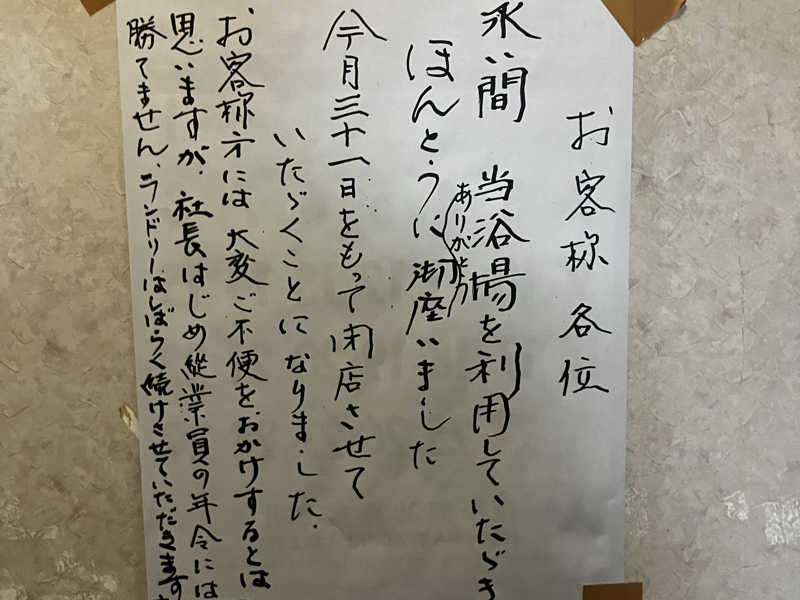 お客様各位
永い間 当浴場を利用していたゞき
ほんとうに御座いました
ありがとう
今月三十一日をもって閉店させて
いたゞくことになりました.
お客様方には大変ご不便をおかけするとは
思いますが、社長はじめ縦業員の年令には
勝てません、ランドリーはしばらく続けさせていただきます